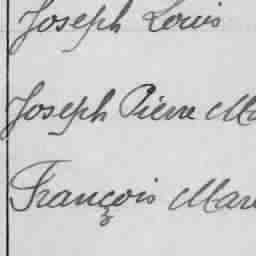 Joseph Louis
Joseph Pierre Ma
François Mar